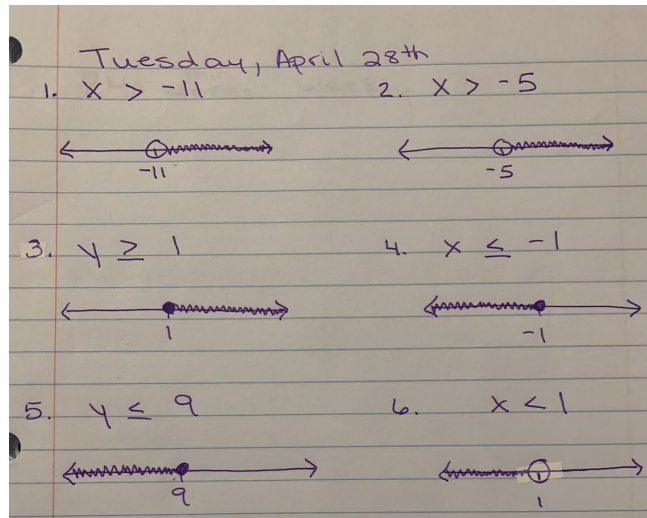 Tuesday, April 28th
1. x > -11 2. x > -5
-11 -5
3. y ≥ 1 4. x ≤ -1
1 -1
5. y ≤ 9 6. x < 1
9 1